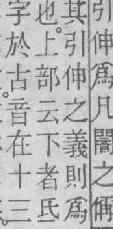 引伸爲凡闇之偁
其引伸之義則爲
也。上部云下者氐
字於古音在十三